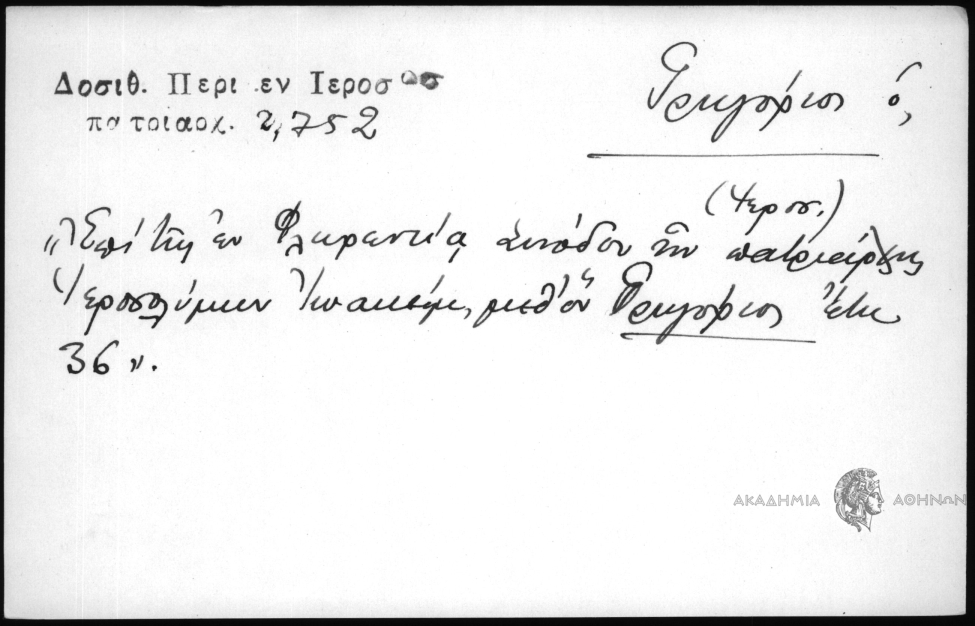 Δοσιθ. Περι εν Ιεροσ
πατριαρχ. 2,752
Γρηγόριος ὁ,
(Ἱεροσ.)
„Ἐπὶ τῆς ἐν Φλωρεντίᾳ Συνόδου ἦν πατριάρχης
Ἱεροσολύμων Ἰωακείμ, μεθ' ὃν Γρηγόριος ἔτη
36".
ΑΚΑΔΗΜΙΑ ΑΘΗΝΩΝ